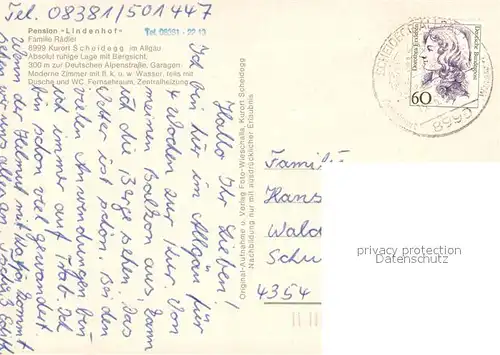 Tel. 08381/501447
Pension - Lindenhof -
Familie Rädler
Tel. 08381 - 22 10
8999 Kurort Scheidegg im Allgäu
Absolut ruhige Lage mit Bergsicht,
300 m zur Deutschen Alpenstraße, Garagen
Moderne Zimmer mit fl. k. u. w. Wasser, teils mit
Dusche und WC, Fernsehraum, Zentralheizung
Hallo Ihr Lieben!
Ich bin hier im Allgäu für
4 Wochen zur Kur. Von
meinem Balkon aus, kann
ich die Berge sehen. Das
Wetter ist schön. Bei den
vielen Anwendungen bin
ich immer auf Trab. Ich
bin schon viel gewandert.
Wenn der Helmut mit kommt
sehen wir uns alles an.
Original-Aufnahme u. Verlag Foto-Wieschalla, Kurort Scheidegg
Nachbildung nur mit ausdrücklicher Erlaubnis
Deutsche Bundespost
Dorothea Erxleben
60
SCHEIDEGG, ALLGÄU
8998
Famili
Hans
Wald
Schu
4354
privacy protection
Datenschutz